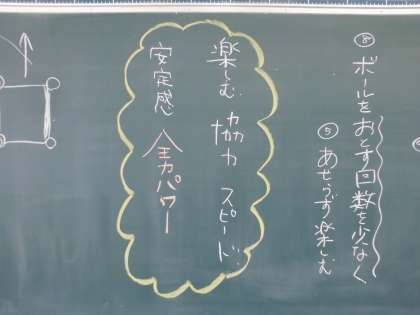 ⑧ ボールをおとす回数を少なく
⑤ あせらず楽しむ
楽しむ 協力 スピード!!
安定感 全力パワー